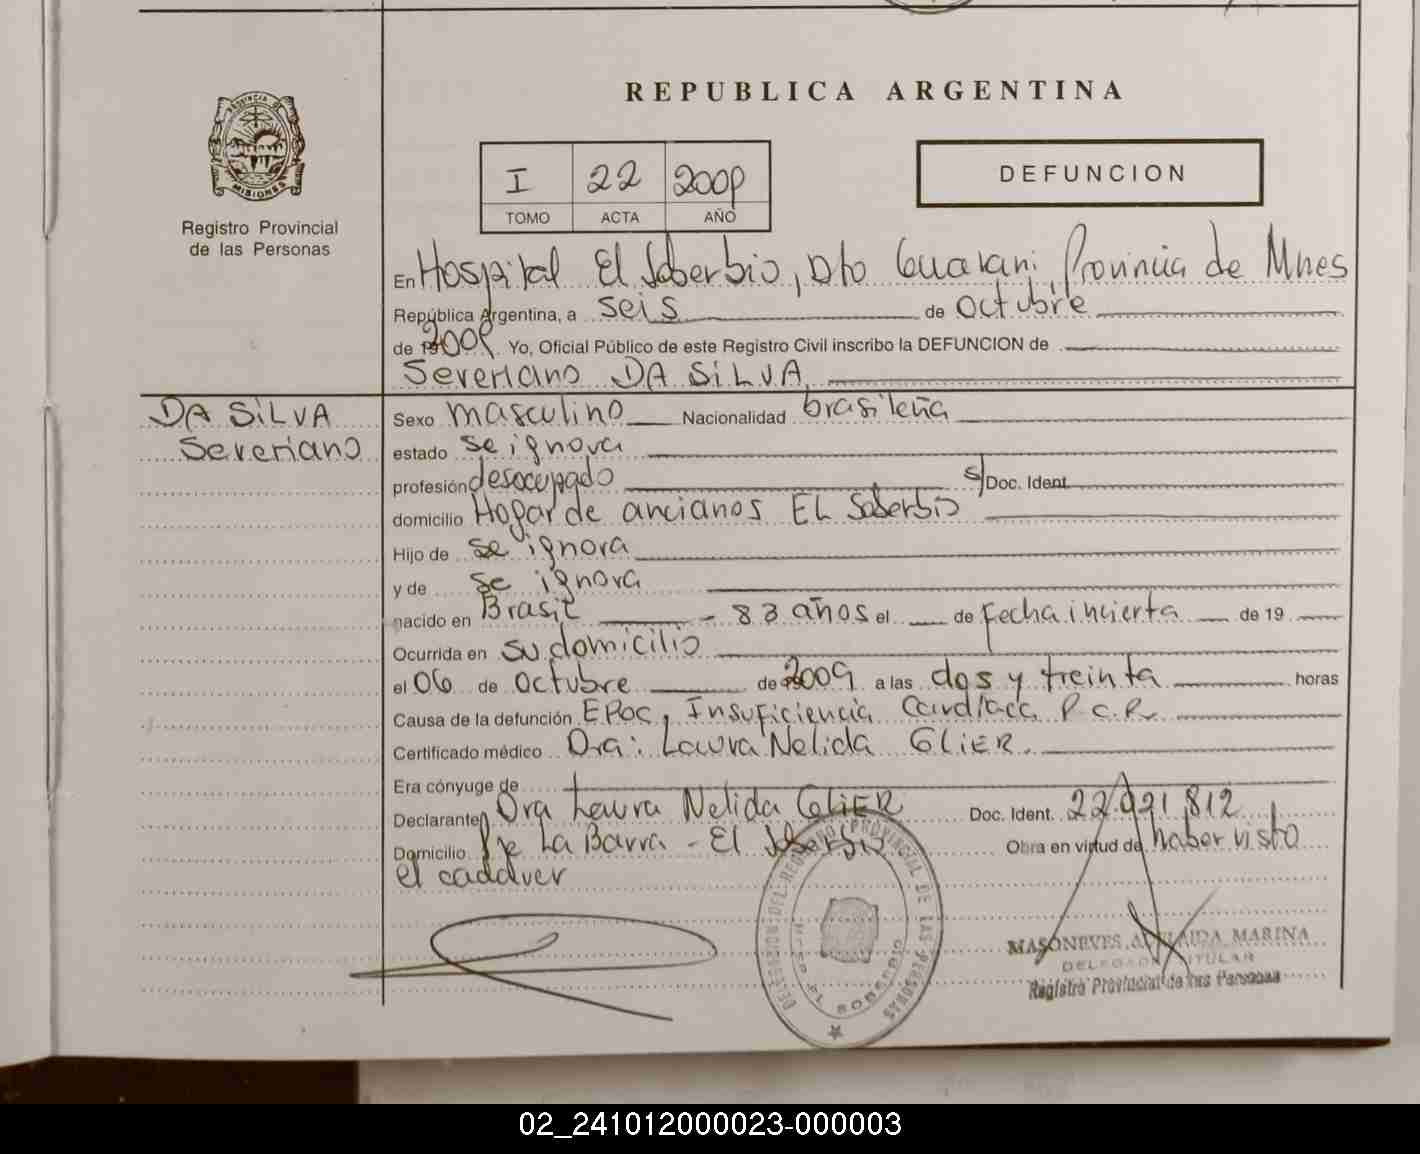 REPUBLICA ARGENTINA
PROVINCIA DE
MISIONES
Registro Provincial
de las Personas
I 22 2009
TOMO ACTA AÑO
DEFUNCION
En Hospital El Soberbio, Dto Guarani Provincia de Mnes
República Argentina, a seis de octubre
de 2009. Yo, Oficial Público de este Registro Civil inscribo la DEFUNCION de
Severiano DA SILVA
DA SILVA
Severiano
Sexo masculino Nacionalidad brasileña
estado se ignora
profesión desocupado s/ Doc. Ident.
domicilio Hogar de ancianos EL Soberbio
Hijo de se ignora
y de se ignora
nacido en Brasil - 83 años el de fecha incierta de 19
Ocurrida en su domicilio
el 06 de octubre de 2009 a las dos y treinta horas
Causa de la defunción EPOC, Insuficiencia Cardiaca P.C.R.
Certificado médico Dra: Laura Nelida GLIER.
Era cónyuge de
Declarante Dra Laura Nelida GLIER Doc. Ident. 22.921.812
Domicilio De La Barra - El Soberbio Obra en virtud de haber visto
el cadaver
DELEGACION DEL REGISTRO PROVINCIAL DE LAS PERSONAS
EL SOBERBIO
MASONEVES ADELAIDA MARINA
DELEGADA TITULAR
Registro Provincial de las Personas
02_241012000023-000003